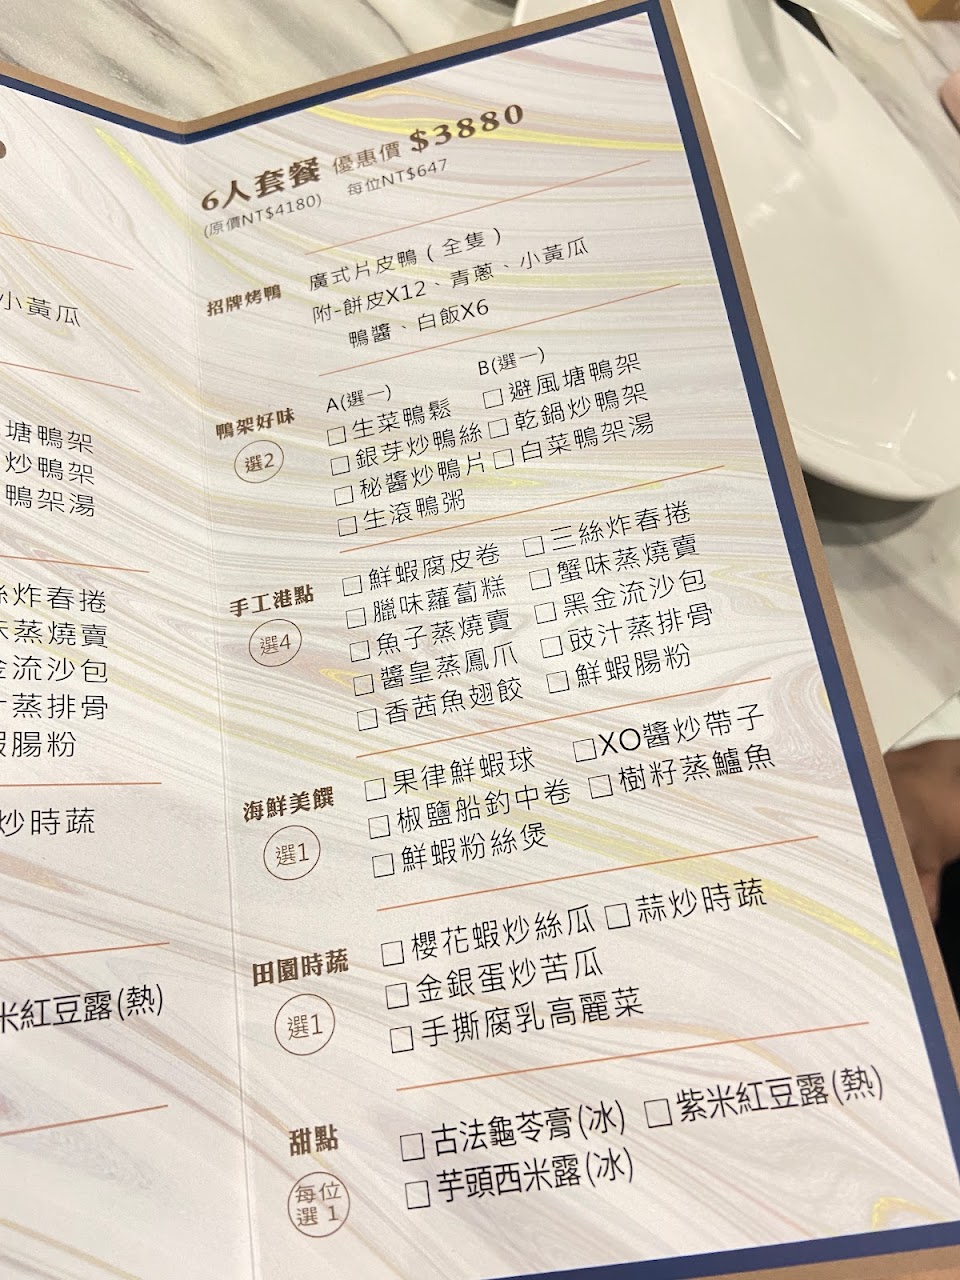 小黃瓜
塘鴨架
炒鴨架
鴨架湯
炸春捲
蒸燒賣
金流沙包
汁蒸排骨
蝦腸粉
炒時蔬
米紅豆露(熱)
6人套餐 優惠價 $3880
(原價NT$4180) 每位NT$647
招牌烤鴨
廣式片皮鴨(全隻)
附-餅皮X12、青蔥、小黃瓜
鴨醬、白飯X6
鴨架好味
選2
A(選一) B(選一)
□生菜鴨鬆 □避風塘鴨架
□銀芽炒鴨絲 □乾鍋炒鴨架
□秘醬炒鴨片 □白菜鴨架湯
□生滾鴨粥
手工港點
選4
□鮮蝦腐皮卷 □三絲炸春捲
□臘味蘿蔔糕 □蟹味蒸燒賣
□魚子蒸燒賣 □黑金流沙包
□醬皇蒸鳳爪 □豉汁蒸排骨
□香茜魚翅餃 □鮮蝦腸粉
海鮮美饌
選1
□果律鮮蝦球 □XO醬炒帶子
□椒鹽船釣中卷 □樹籽蒸鱸魚
□鮮蝦粉絲煲
田園時蔬
選1
□櫻花蝦炒絲瓜 □蒜炒時蔬
□金銀蛋炒苦瓜
□手撕腐乳高麗菜
甜點
每位
選1
□古法龜苓膏(冰) □紫米紅豆露(熱)
□芋頭西米露(冰)